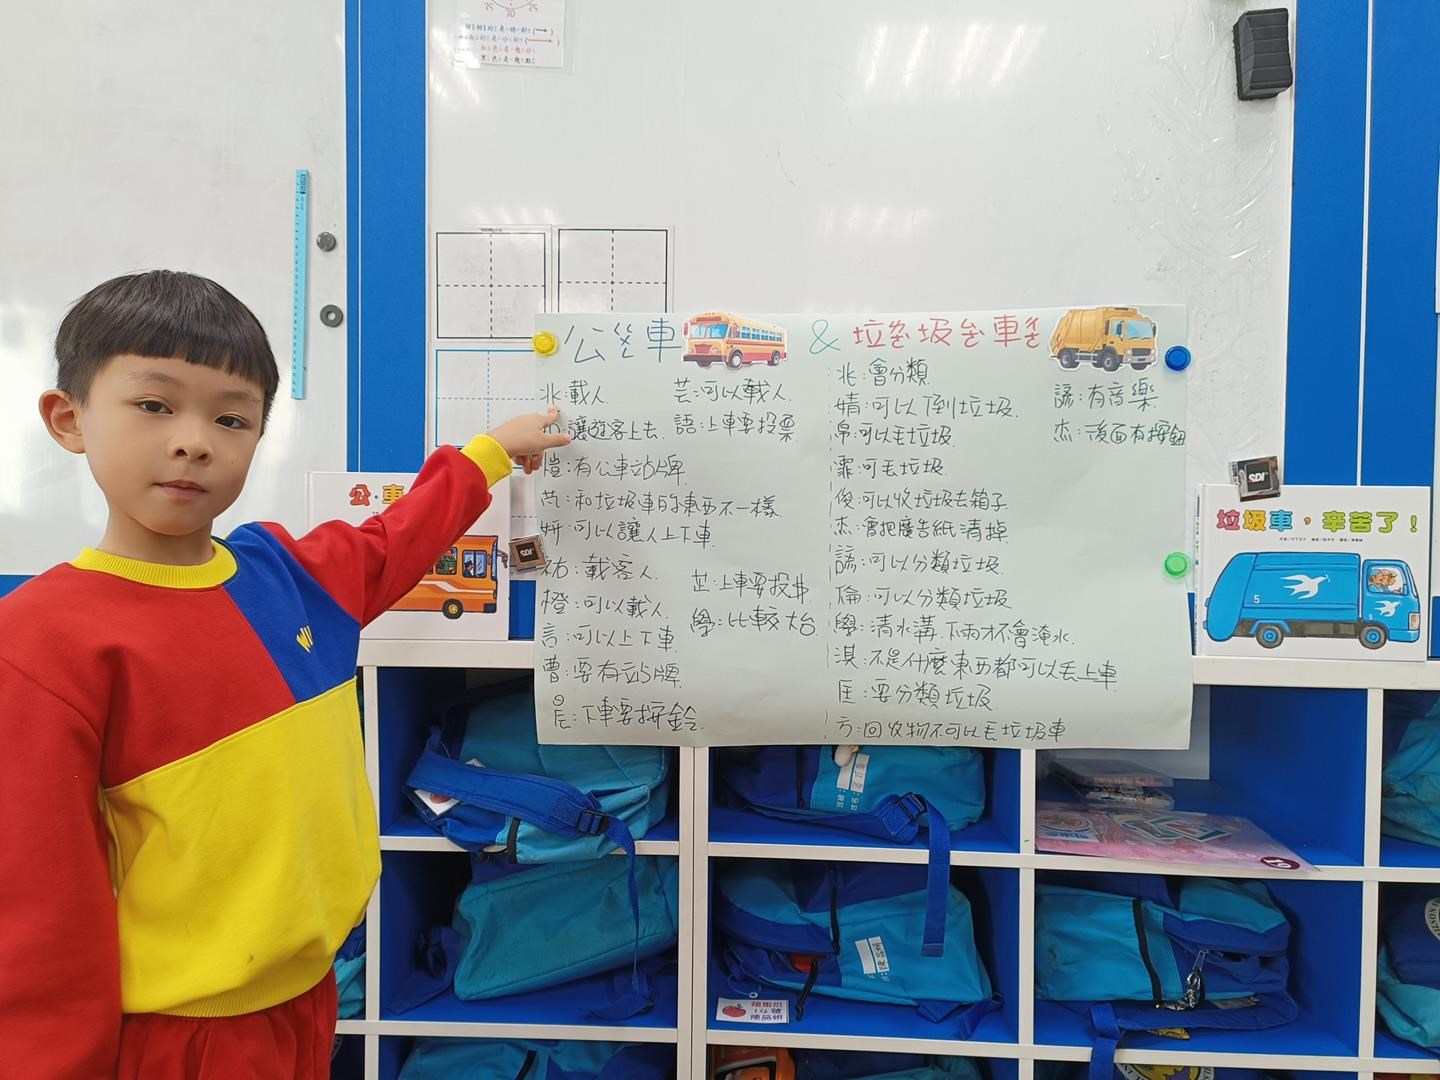 公ㄍㄨㄥ車 & 垃ㄌㄜˋ圾ㄙㄜˋ車ㄔㄜ
北:載人.
芸:可以載人.
讓遊客上去.
語:上車要投票
愷:有公車站牌
芮:和垃圾車的東西不一樣
妍:可以讓人上下車
祐:載客人.
芷:上車要投錢
橙:可以載人.
學:比較大台.
言:可以上下車
曹:要有站牌
昃:下車要按鈴.
北:會分類
諺:有音樂
婧:可以倒垃圾.
杰:後面有按鈕
帛:可以丟垃圾.
霏:可丟垃圾.
俊:可以收垃圾去箱子
杰:會把廣告紙清掉
諺:可以分類垃圾
倫:可以分類垃圾
學:清水溝.下雨才不會淹水.
淇:不是什麼東西都可以丟上車
匡:要分類垃圾
方:回收物不可以丟垃圾車
公·車
垃圾車，辛苦了！
5
5
SDI
SDI
WU
蘋蘋班
14號
陳品妍
19
25
30
35